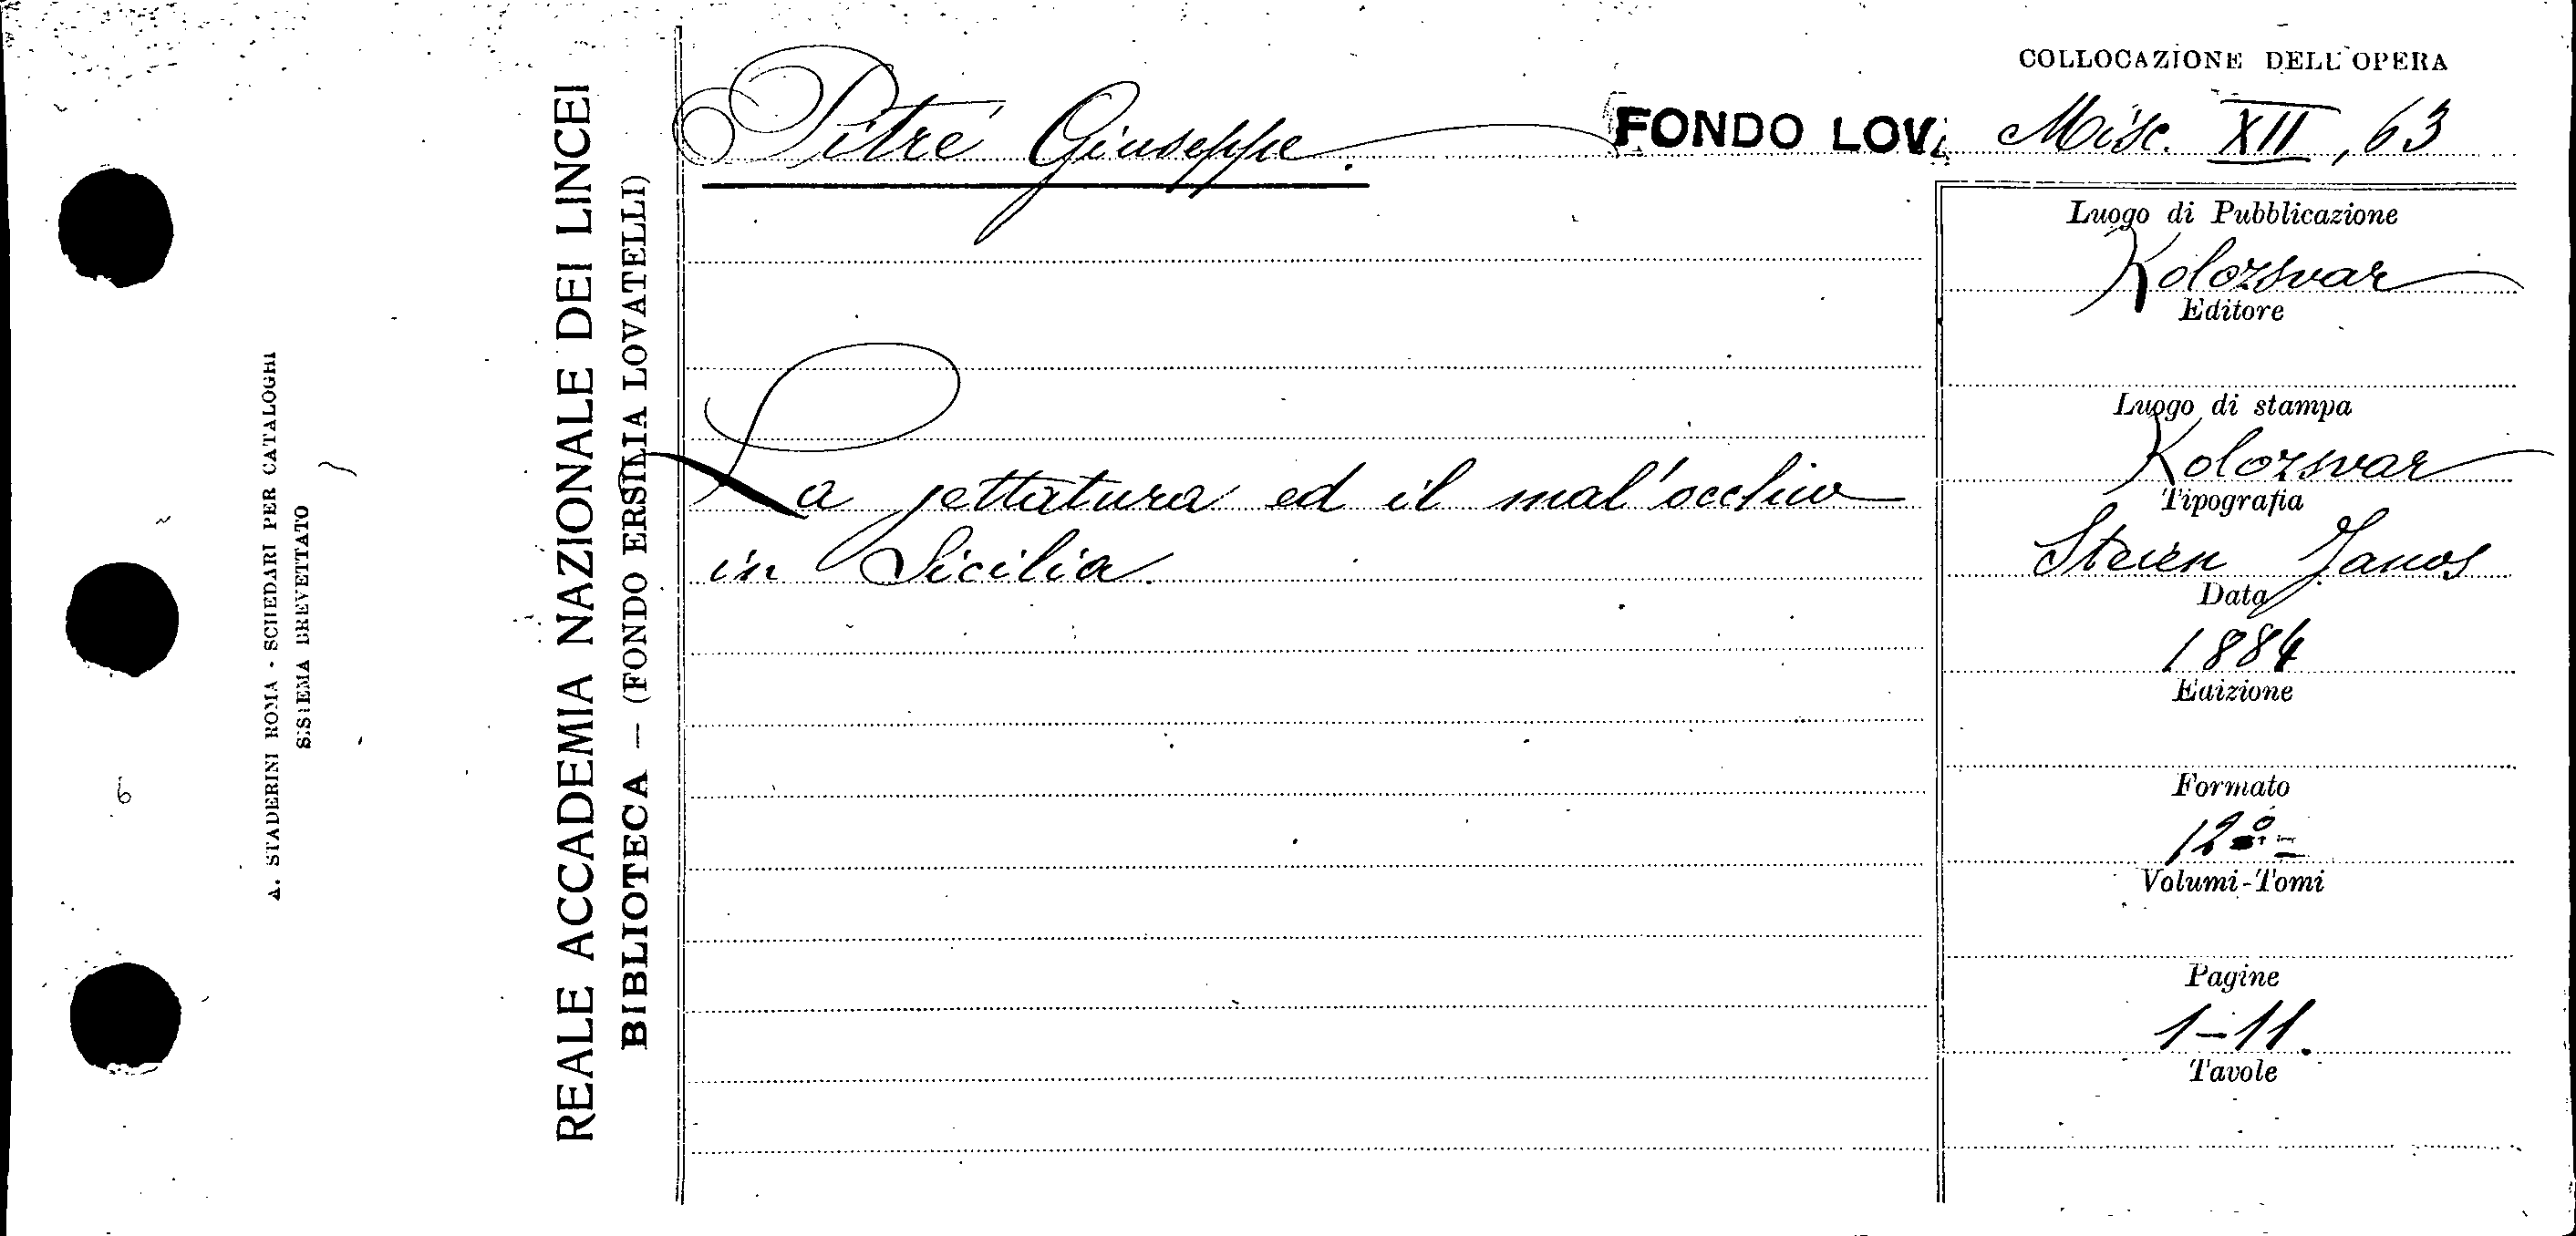 A. STADERINI ROMA - SCHEDARI PER CATALOGHI
SISTEMA BREVETTATO
6
REALE ACCADEMIA NAZIONALE DEI LINCEI
BIBLIOTECA — (FONDO ERSILIA LOVATELLI)
Pitré Giuseppe.
FONDO LOV.
COLLOCAZIONE DELL'OPERA
Misc. XII, 63
La jettatura ed il mal'occhio
in Sicilia.
Luogo di Pubblicazione
Kolozsvar
Editore
Luogo di stampa
Kolozsvar
Tipografia
Steien Janos
Data
1884
Edizione
Formato
12°
Volumi-Tomi
Pagine
1-11.
Tavole